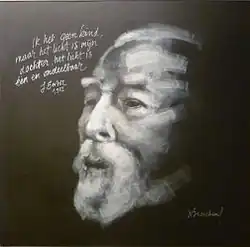 Ik heb geen kind,
maar het licht is mijn
dochter. het licht is
één en ondeelbaar
J Ensor